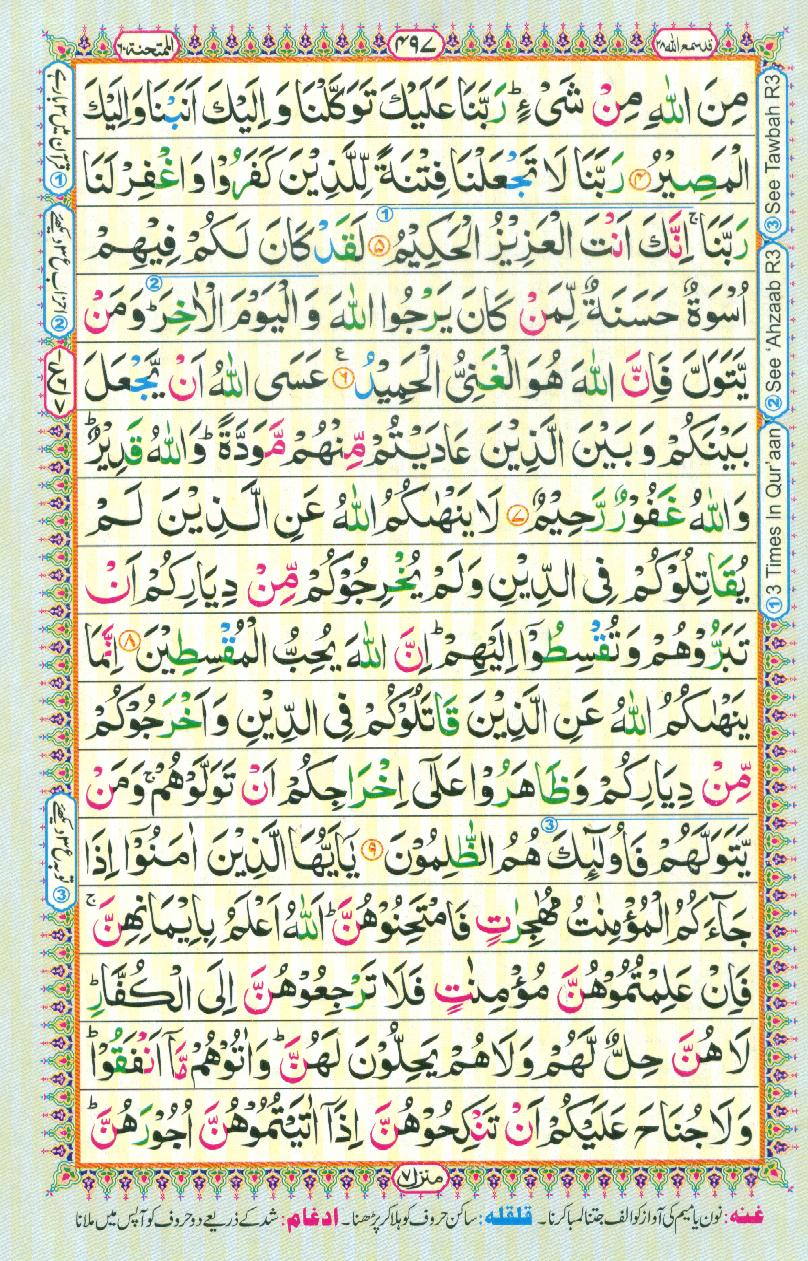 قد سمع الله ۲۸
۴۹۷
الممتحنة ۶۰
مِنَ اللّٰهِ مِنْ شَیْءٍ ؕ رَبَّنَا عَلَیْكَ تَوَكَّلْنَا وَ اِلَیْكَ اَنَبْنَا وَ اِلَیْكَ
الْمَصِیْرُ ﴿۴﴾ رَبَّنَا لَا تَجْعَلْنَا فِتْنَةً لِّلَّذِیْنَ كَفَرُوْا وَ اغْفِرْ لَنَا
رَبَّنَا ۚ اِنَّكَ اَنْتَ الْعَزِیْزُ الْحَكِیْمُ ﴿۵﴾ لَقَدْ كَانَ لَكُمْ فِیْهِمْ
اُسْوَةٌ حَسَنَةٌ لِّمَنْ كَانَ یَرْجُوا اللّٰهَ وَ الْیَوْمَ الْاٰخِرَ ؕ وَ مَنْ
یَّتَوَلَّ فَاِنَّ اللّٰهَ هُوَ الْغَنِیُّ الْحَمِیْدُ ﴿۶﴾ ع عَسَى اللّٰهُ اَنْ یَّجْعَلَ
بَیْنَكُمْ وَ بَیْنَ الَّذِیْنَ عَادَیْتُمْ مِّنْهُمْ مَّوَدَّةً ؕ وَ اللّٰهُ قَدِیْرٌ ؕ
وَ اللّٰهُ غَفُوْرٌ رَّحِیْمٌ ﴿۷﴾ لَا یَنْهٰىكُمُ اللّٰهُ عَنِ الَّذِیْنَ لَمْ
یُقَاتِلُوْكُمْ فِی الدِّیْنِ وَ لَمْ یُخْرِجُوْكُمْ مِّنْ دِیَارِكُمْ اَنْ
تَبَرُّوْهُمْ وَ تُقْسِطُوْۤا اِلَیْهِمْ ؕ اِنَّ اللّٰهَ یُحِبُّ الْمُقْسِطِیْنَ ﴿۸﴾ اِنَّمَا
یَنْهٰىكُمُ اللّٰهُ عَنِ الَّذِیْنَ قَاتَلُوْكُمْ فِی الدِّیْنِ وَ اَخْرَجُوْكُمْ
مِّنْ دِیَارِكُمْ وَ ظَاهَرُوْا عَلٰۤى اِخْرَاجِكُمْ اَنْ تَوَلَّوْهُمْ ۚ وَ مَنْ
یَّتَوَلَّهُمْ فَاُولٰٓىِٕكَ هُمُ الظّٰلِمُوْنَ ﴿۹﴾ یٰۤاَیُّهَا الَّذِیْنَ اٰمَنُوْۤا اِذَا
جَآءَكُمُ الْمُؤْمِنٰتُ مُهٰجِرٰتٍ فَامْتَحِنُوْهُنَّ ؕ اَللّٰهُ اَعْلَمُ بِاِیْمَانِهِنَّ ۚ
فَاِنْ عَلِمْتُمُوْهُنَّ مُؤْمِنٰتٍ فَلَا تَرْجِعُوْهُنَّ اِلَى الْكُفَّارِ ؕ
لَا هُنَّ حِلٌّ لَّهُمْ وَ لَا هُمْ یَحِلُّوْنَ لَهُنَّ ؕ وَ اٰتُوْهُمْ مَّاۤ اَنْفَقُوْا ؕ
وَ لَا جُنَاحَ عَلَیْكُمْ اَنْ تَنْكِحُوْهُنَّ اِذَاۤ اٰتَیْتُمُوْهُنَّ اُجُوْرَهُنَّ ؕ
منزل ۷
غنه: نون یا میم کی آواز کو الف جتنا لمبا کرنا۔ قلقله: ساکن حروف کو ہلا کر پڑھنا۔ ادغام: شد کے ذریعے دو حروف کو آپس میں ملانا
③ See Tawbah R3
② See 'Ahzaab R3
① 3 Times In Qur'aan